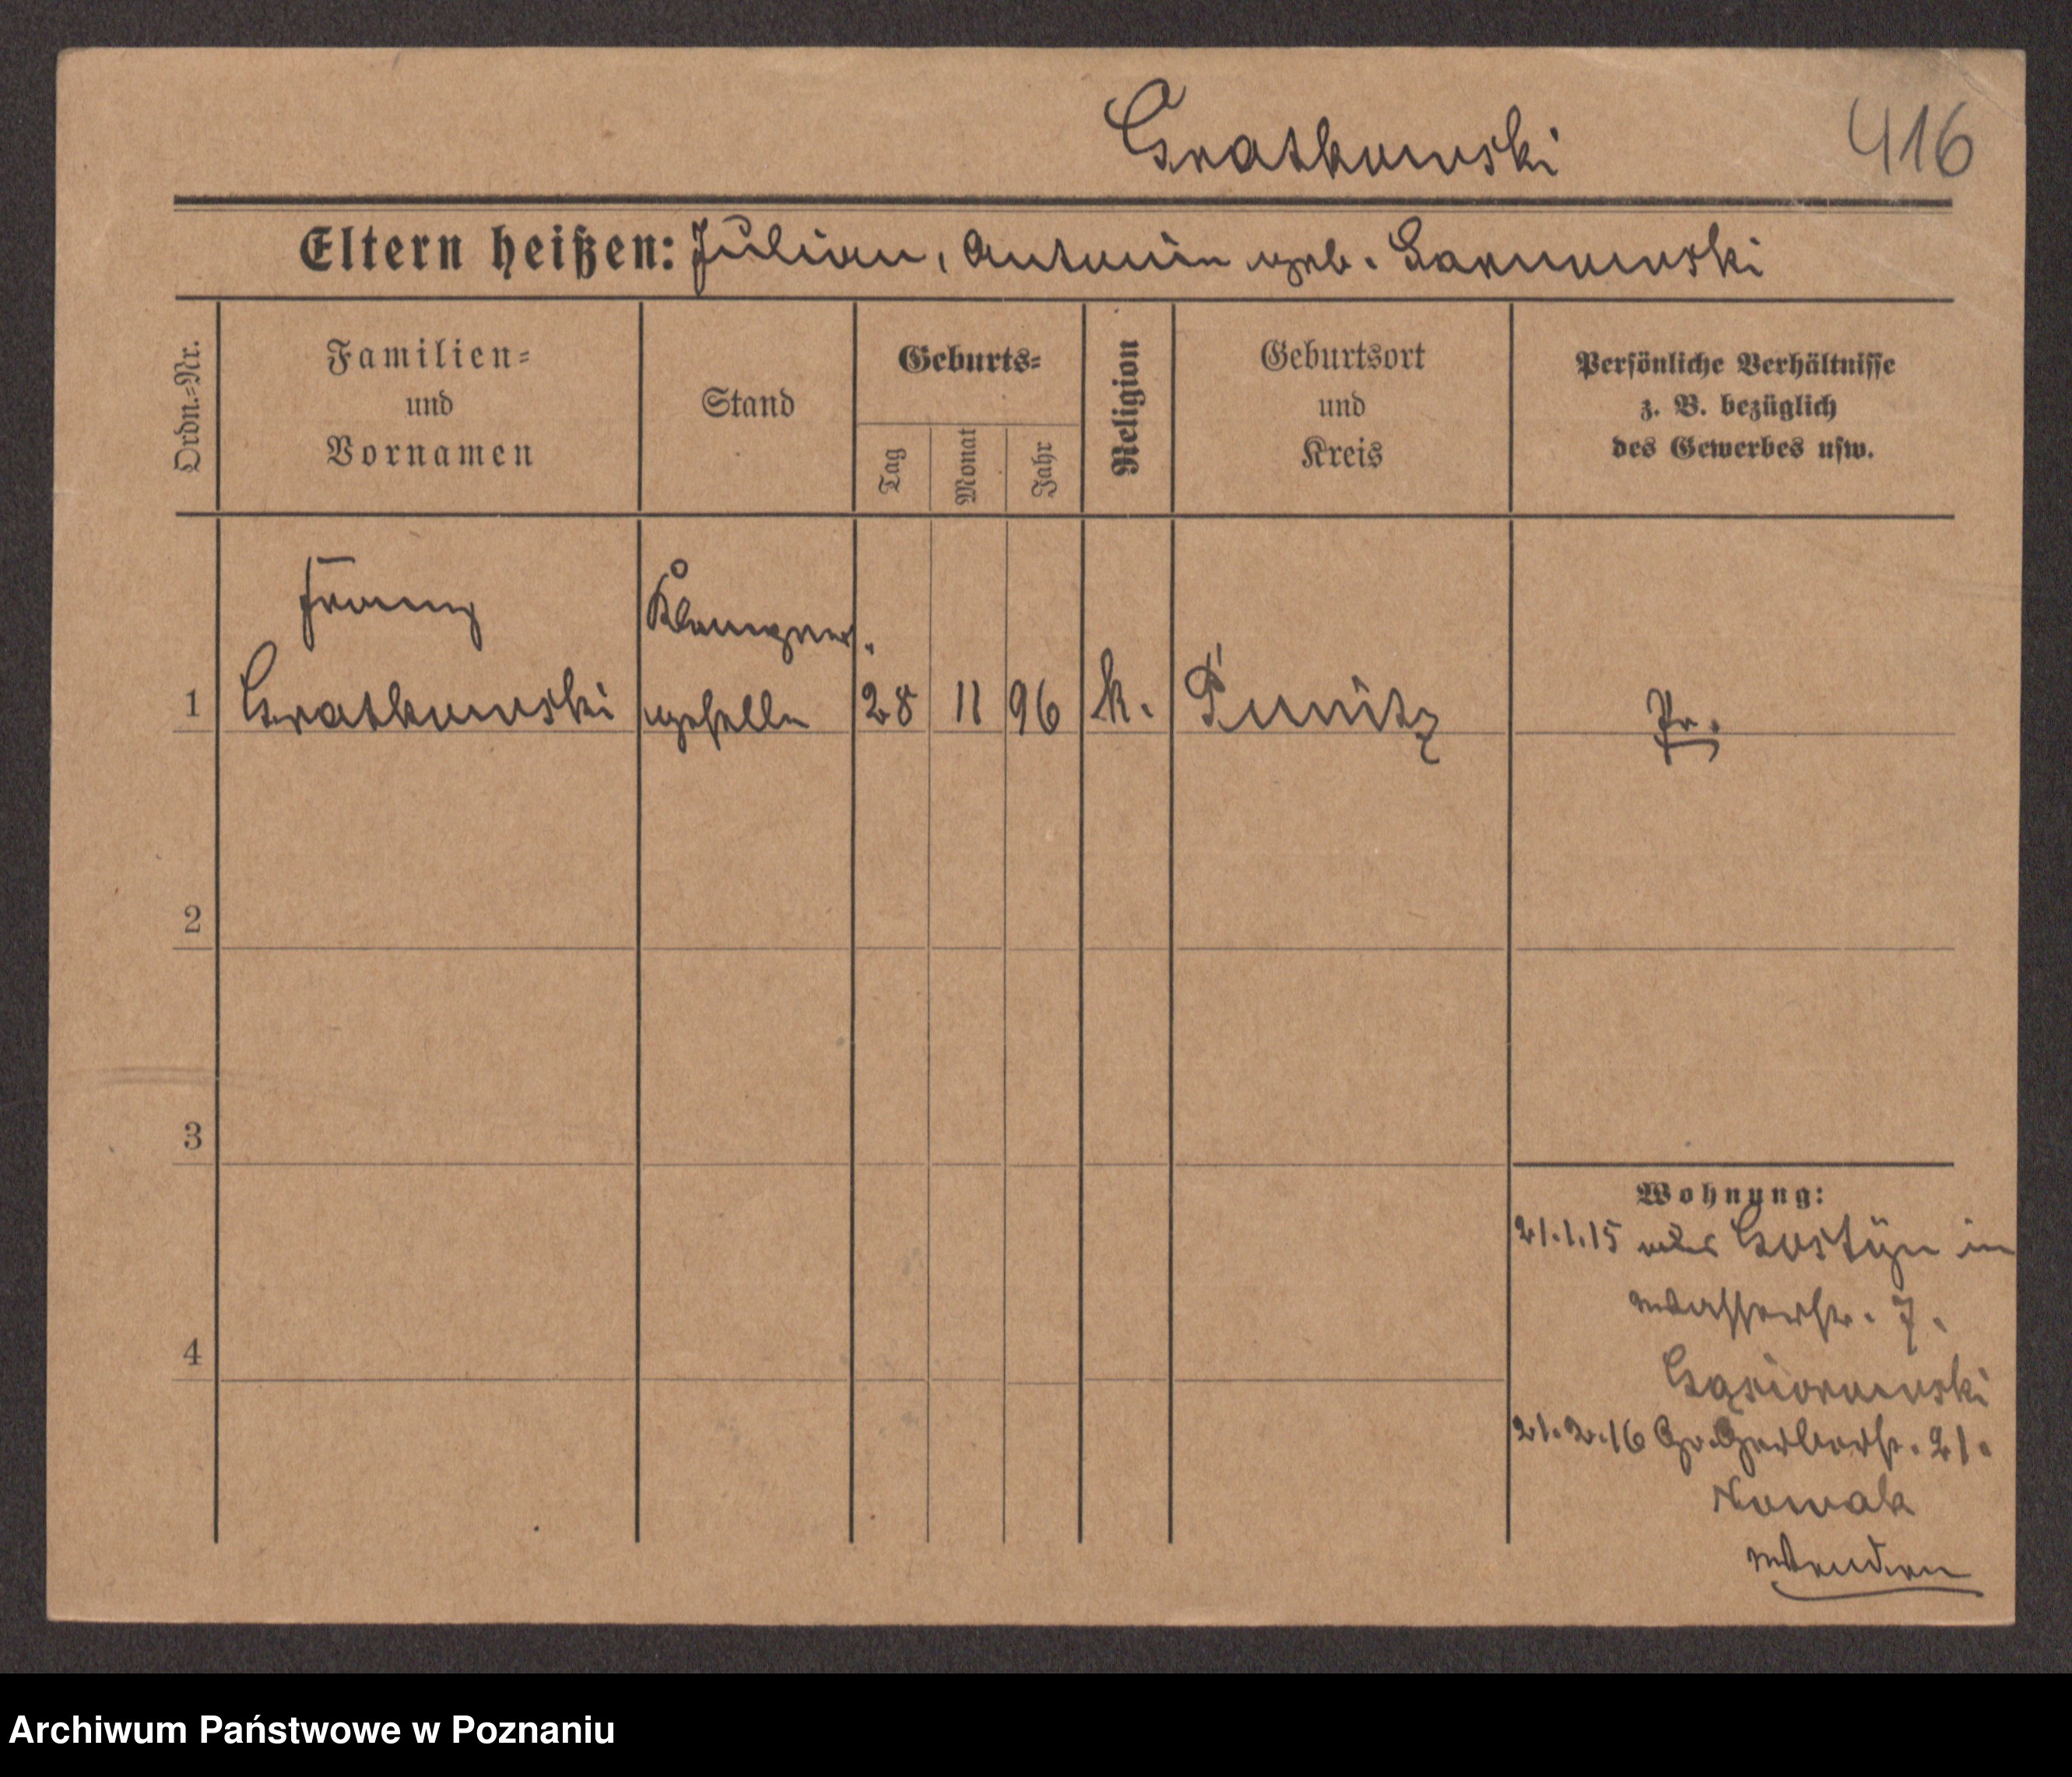 Gratkowski 416
Eltern heißen: Julian, Antonie geb. Sarnowski
Ordn.=Nr.
Familien=
und
Vornamen
Stand
Geburts=
Tag
Monat
Jahr
Religion
Geburtsort
und
Kreis
Persönliche Verhältnisse
z. B. bezüglich
des Gewerbes usw.
Franz Klempner
1 Gratkowski geselle 28 11 96 k. Punitz Pr.
2
3
4
Wohnung:
21.1.15 aus Gostyn in
Wasserstr. 7.
Gąsiorowski
21.2.16 Gr. Gerberstr. 21.
Nowak
Archiwum Państwowe w Poznaniu